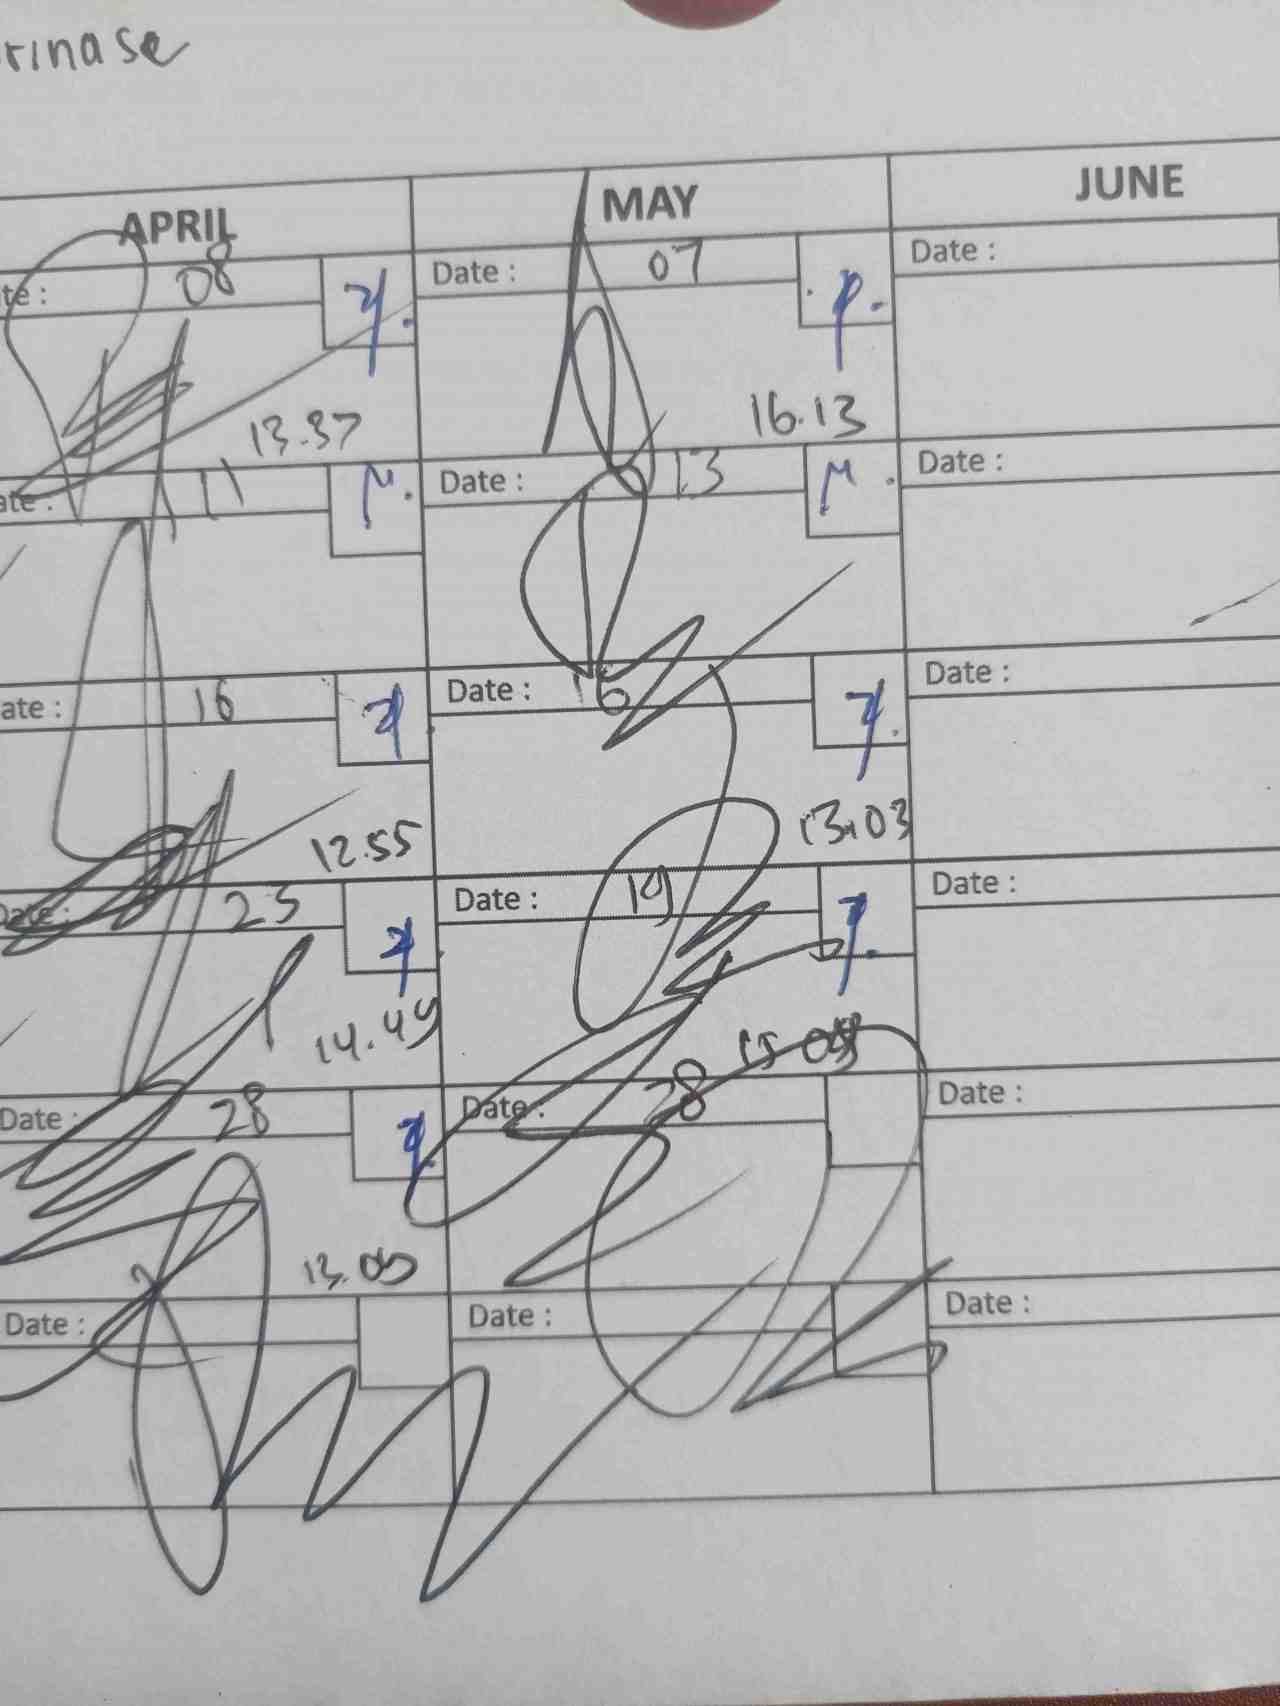 rinase
APRIL MAY JUNE
te : 08 Date : 07 Date :
13.37 16.13
ate : 11 Date : 13 Date :
ate : 16 Date : 16 Date :
12.55 13.03
Date : 25 Date : 19 Date :
14.49
Date : 28 Date : 28 Date :
Date : Date : Date :